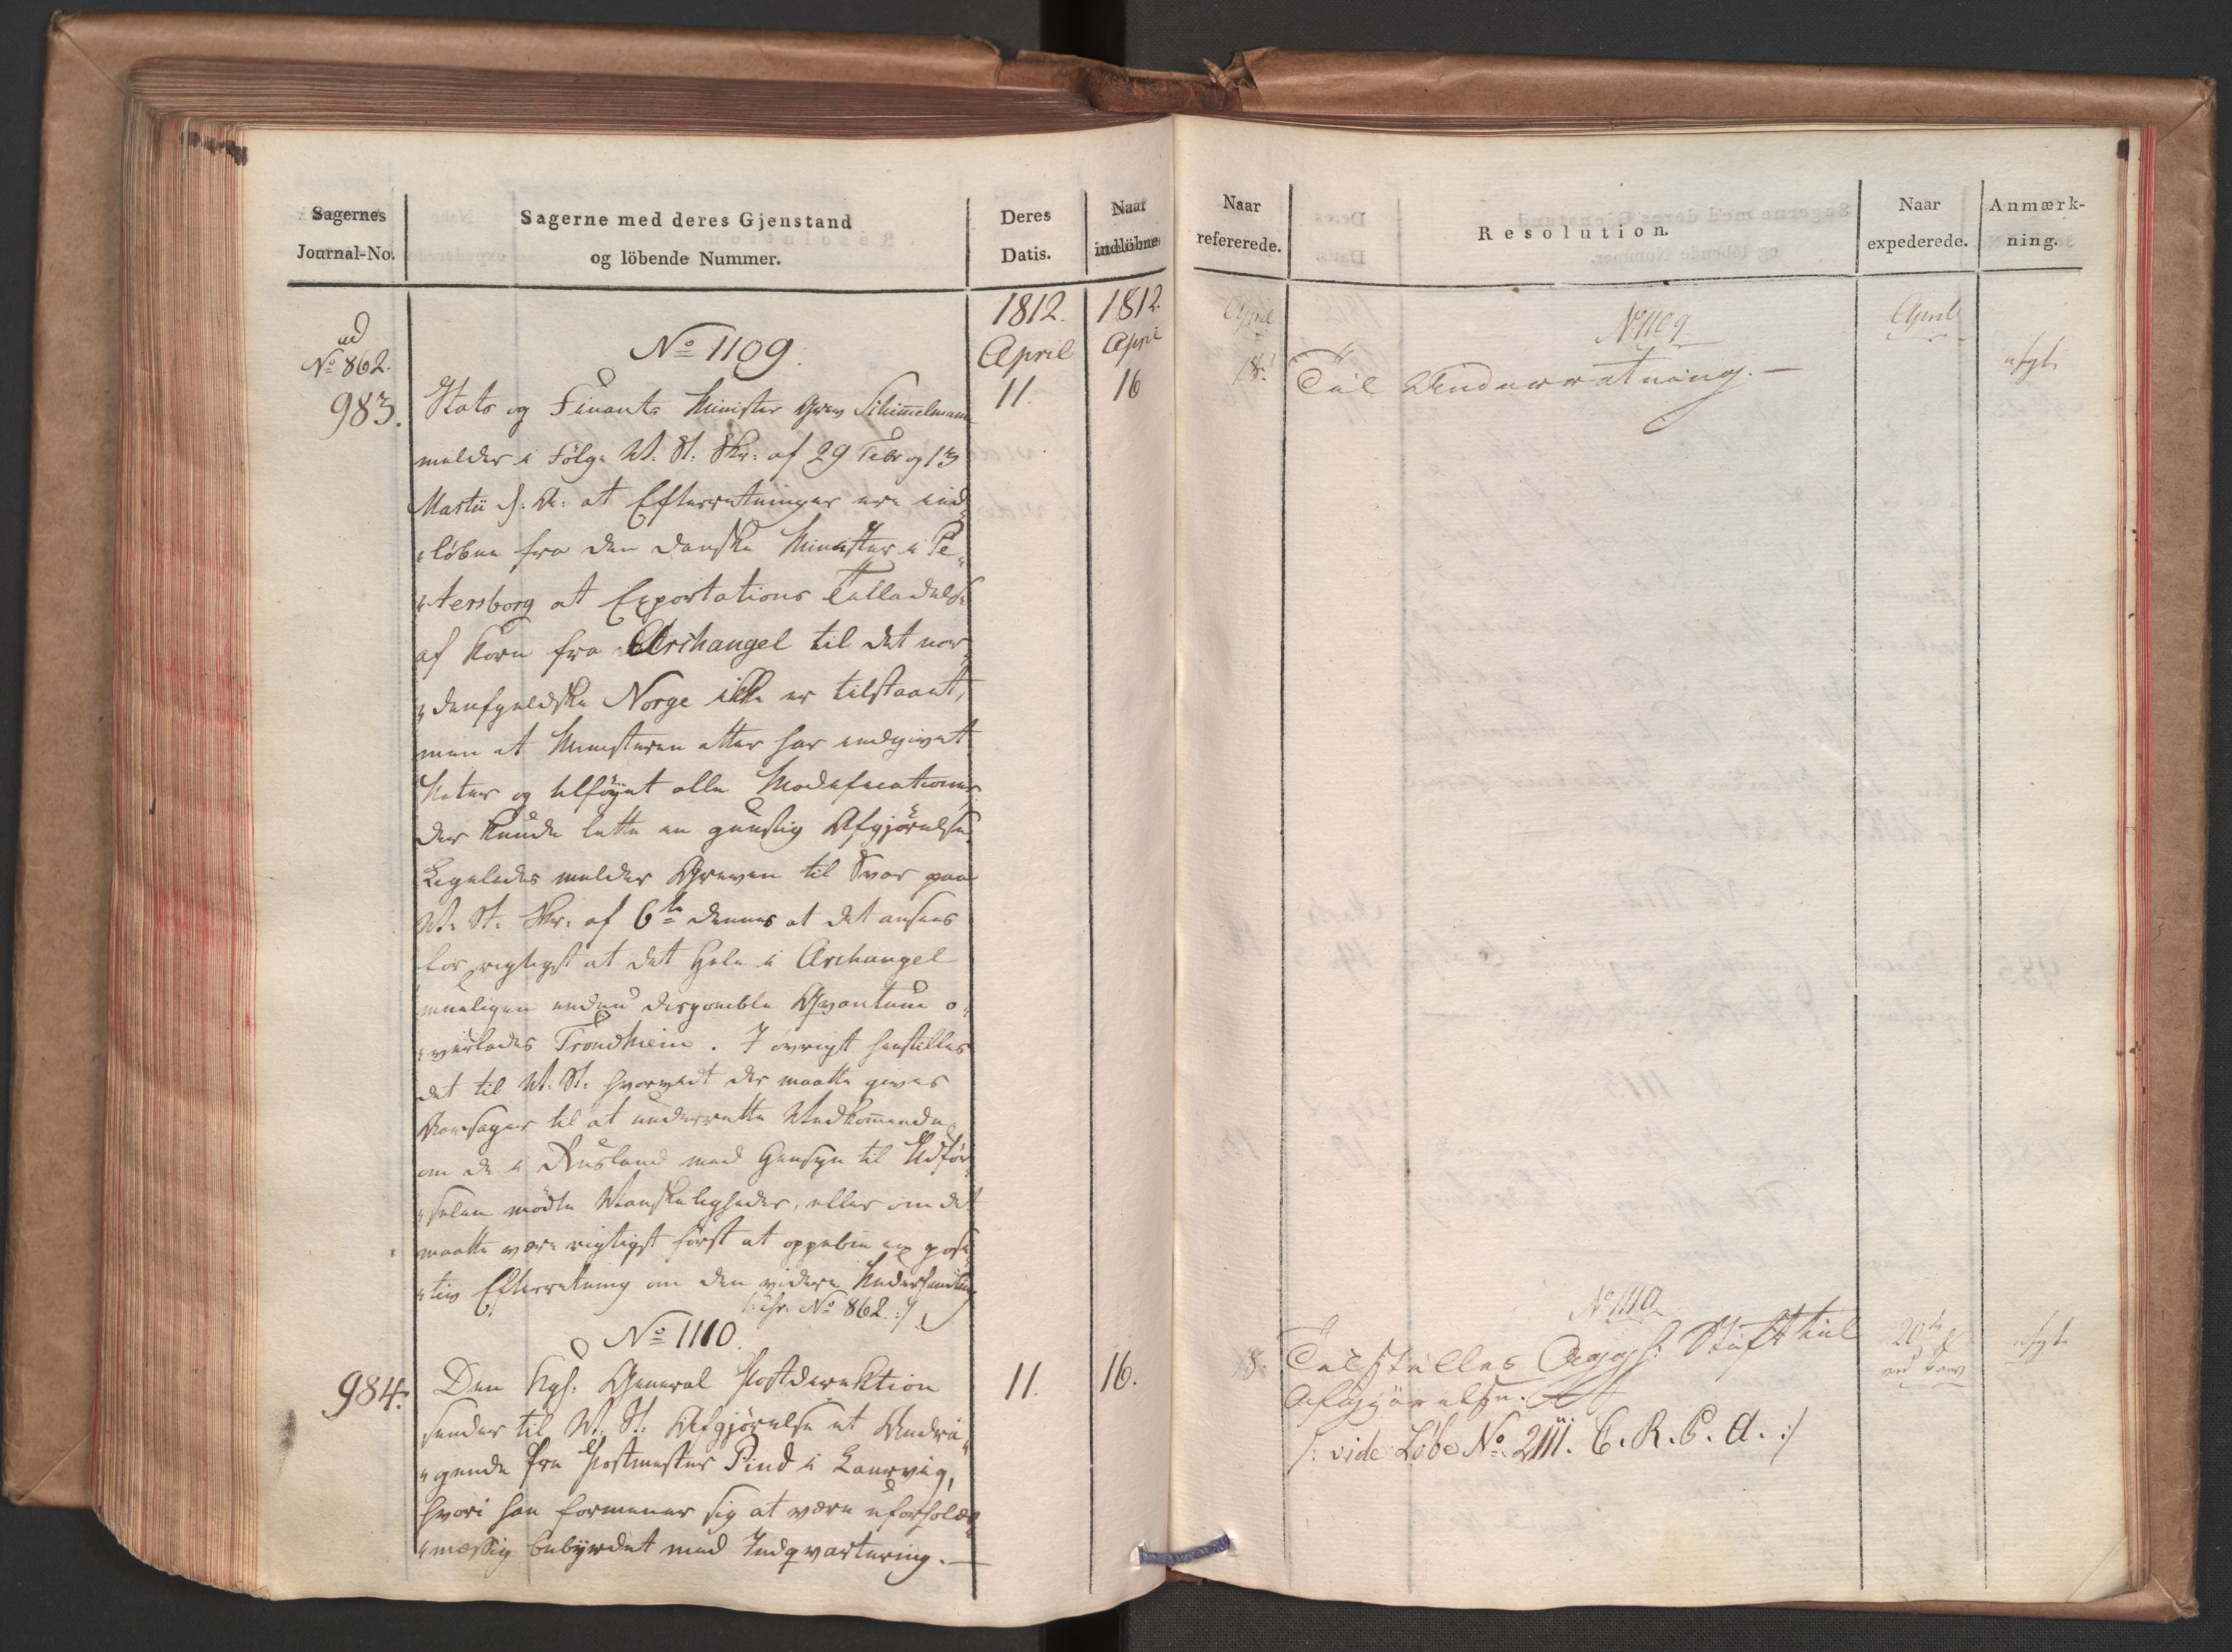 Sagernes
Journal-No.
Sagerne med deres Gjenstand
og löbende Nummer.
Deres
Datis.
Naar
indlöbne
1812.
April
1812.
April
ad
No 862.
983.
No 1109.
11.
16
Stats og Finants Minister Grev Schimmelmann
melder i Følge W. St. Skr: af 29 Febr og 13
Martii d: A: at Efterretninger ere ind¬
„løbne fra den danske Minister i Pe¬
„tersborg at Exportations Tilladelse
af Korn fra Archangel til det nor¬
„denfjeldske Norge ikke er tilstaaet,
men at Ministeren atter har indgivet
Noter og tilföyet alle Modificationer
der kunde lette en gunstig Afgjörelse.
Ligeledes melder Greven til Svar paa
W. St. Skr: af 6te dennes at det ansees
for rigtigst at det hele i Archangel
mueligen endnu disponible Qvantum o¬
„verlades Trondhiem. I övrigt henstilles
det til W. St. hvorvidt der maatte gives
Vedkommende
om de i Rusland med Hensyn til Udför¬
„selen mödte Vanskeligheder, eller om det
maatte være rigtigst först at oppebie en posi¬
„tiv Efterretning om den videre Underhandling
/: cfr: No 862 :/
No 1110.
984.
11.
16.
Den Kgl: General Postdirektion
sender til W. St. Afgjörelse et Andra¬
„gende fra Postmester Pind i Laurvig,
hvori han formener sig at være uforholds¬
„mæssig bebyrdet med Indqvartering.—
Naar
refererede.
Resolution.
Naar
expederede.
Anmærk-
ning.
April
No 1109
April
18.
Til Underretning.—
No 1110
18.
Tilstilles Aggrh: Stift til
Afgjörelse.
/: vide Löbe No 2111. C. R. P. A. :/
20de